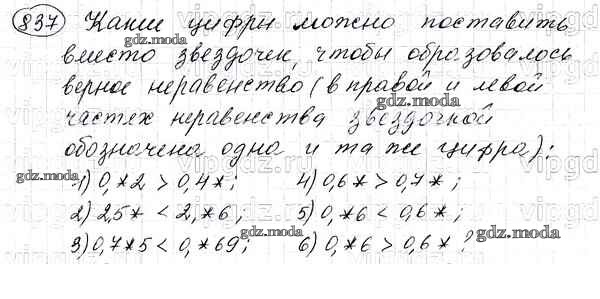 837 Какие цифры можно поставить
вместо звездочек, чтобы образовалось
верное неравенство (в правой и левой
gdz.moda
частях неравенства звездочкой
gdz.moda
обозначена одна и та же цифра):
gdz.moda
1) 0,*2 > 0,4*; 4) 0,6* > 0,7*;
2) 2,5* < 2,*6; 5) 0,*6 < 0,6*;
3) 0,7*5 < 0,*69; 6) 0,*6 > 0,6*?
gdz.moda gdz.moda